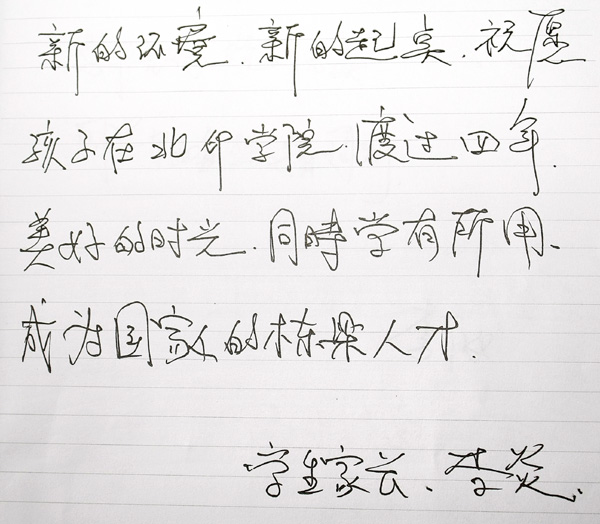 新的环境.新的起点.祝愿
孩子在北什学院.渡过四年.
美好的时光.同時学有所用、
成为国家的栋梁人才.
学生家长、李炎.